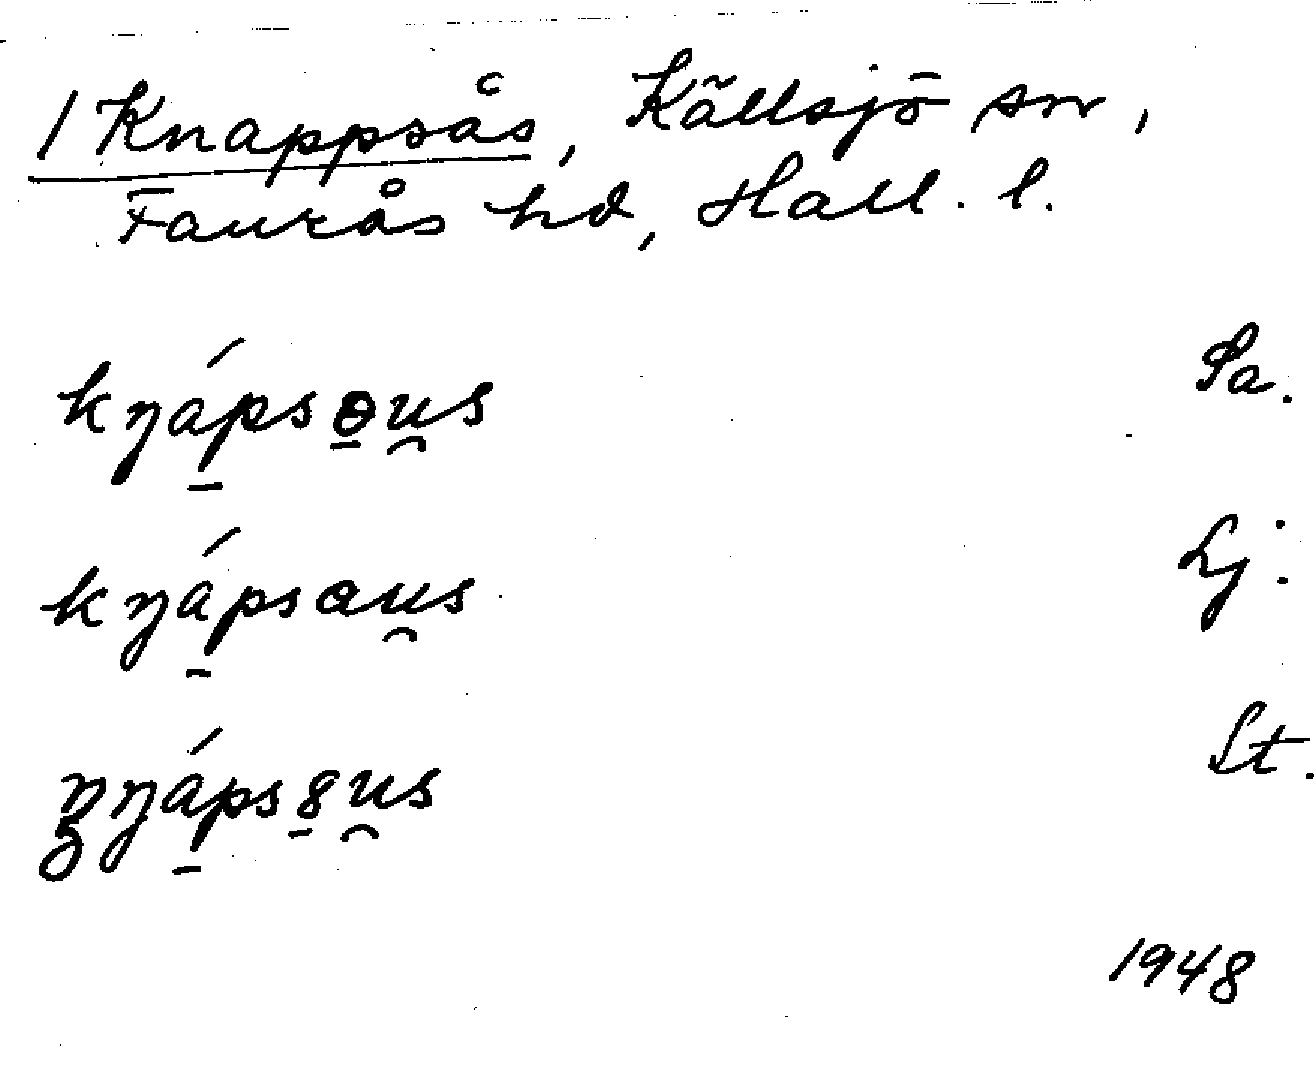 1 Knappsås, Källsjö sn,
Faurås hd, Hall. l.
kŋá̱psɵ̱u̯s Sa.
kŋá̱psau̯s Lj.
ŋá̱ps8̱u̯s St.
1948